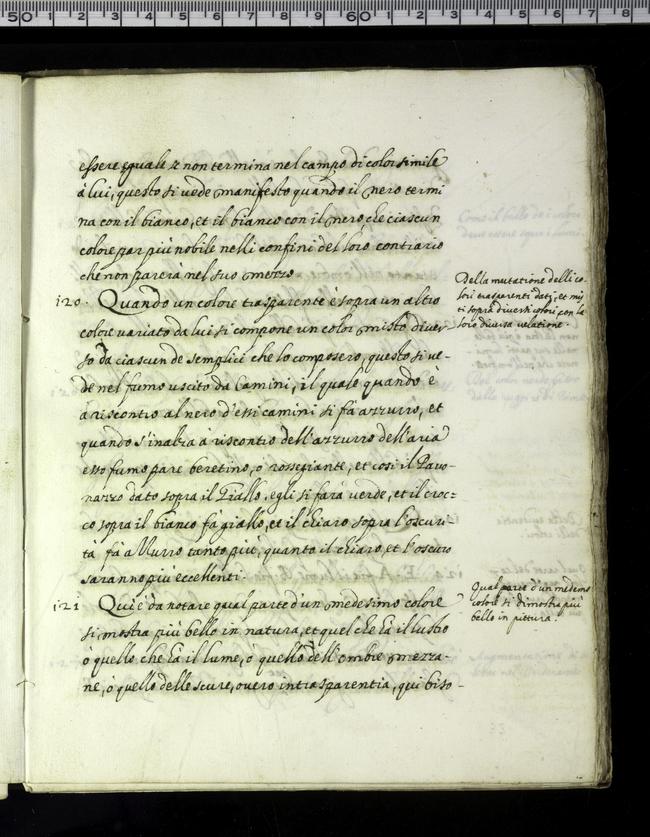 essere eguale et non termina nel campo di color simile
à lui, questo si vede manifesto quando il nero termi
na con il bianco, et il bianco con il nero che ciascun
colore par più nobile nelli confini del loro contrario
che non parerà nel suo mezzo
120. Quando un colore trasparente è sopra un altro
colore variato da lui si compone un color misto diver-
so da ciascun de semplici che lo composero, questo si ve-
de nel fumo uscito da Camini, il quale quando è
à riscontro al nero d'essi camini si fà azzurro, et
quando s'inalza à riscontro dell'azzurro dell'aria
esso fumo pare beretino, ò rosseggiante, et così il Pavo-
nazzo dato sopra il Giallo, egli si farà verde, et il croc-
co sopra il bianco fà giallo, et il chiaro sopra l'oscuri-
tà fà azzurro tanto più, quanto il chiaro, et l'oscuro
saranno più eccellenti.
Della mutatione delli co-
lori trasparenti dati, et mis
ti sopra diversi colori, con la
loro diversa velatione.
121 Qui è da notare qual parte d'un medesimo colore
si mostra più bello in natura, et quel che hà il lustro
ò quello che hà il lume, ò quello dell'ombre mezza-
ne, ò quello delle scure, overo in trasparentia, qui biso-
Qual parte d'un medemo
colore si dimostra più
bello in pittura.